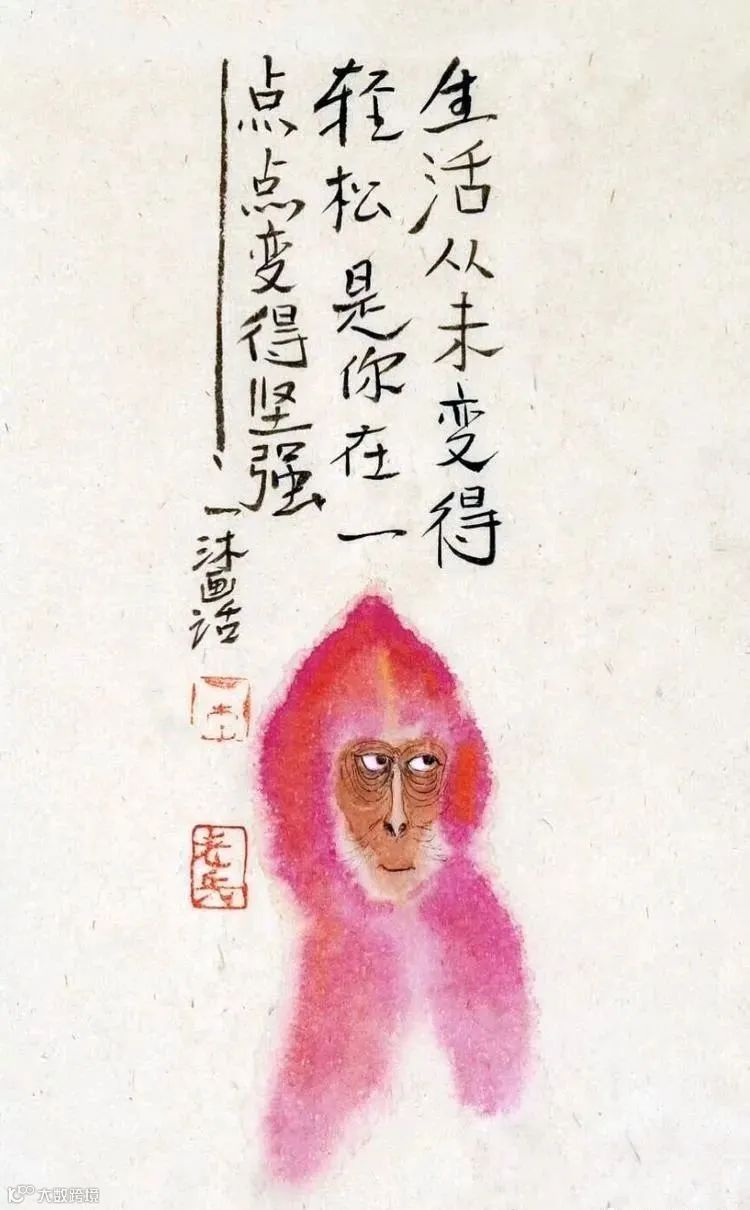 生活从未变得
轻松是你在一
点点变得坚强
一沐画话
一木
老兵
大数跨境